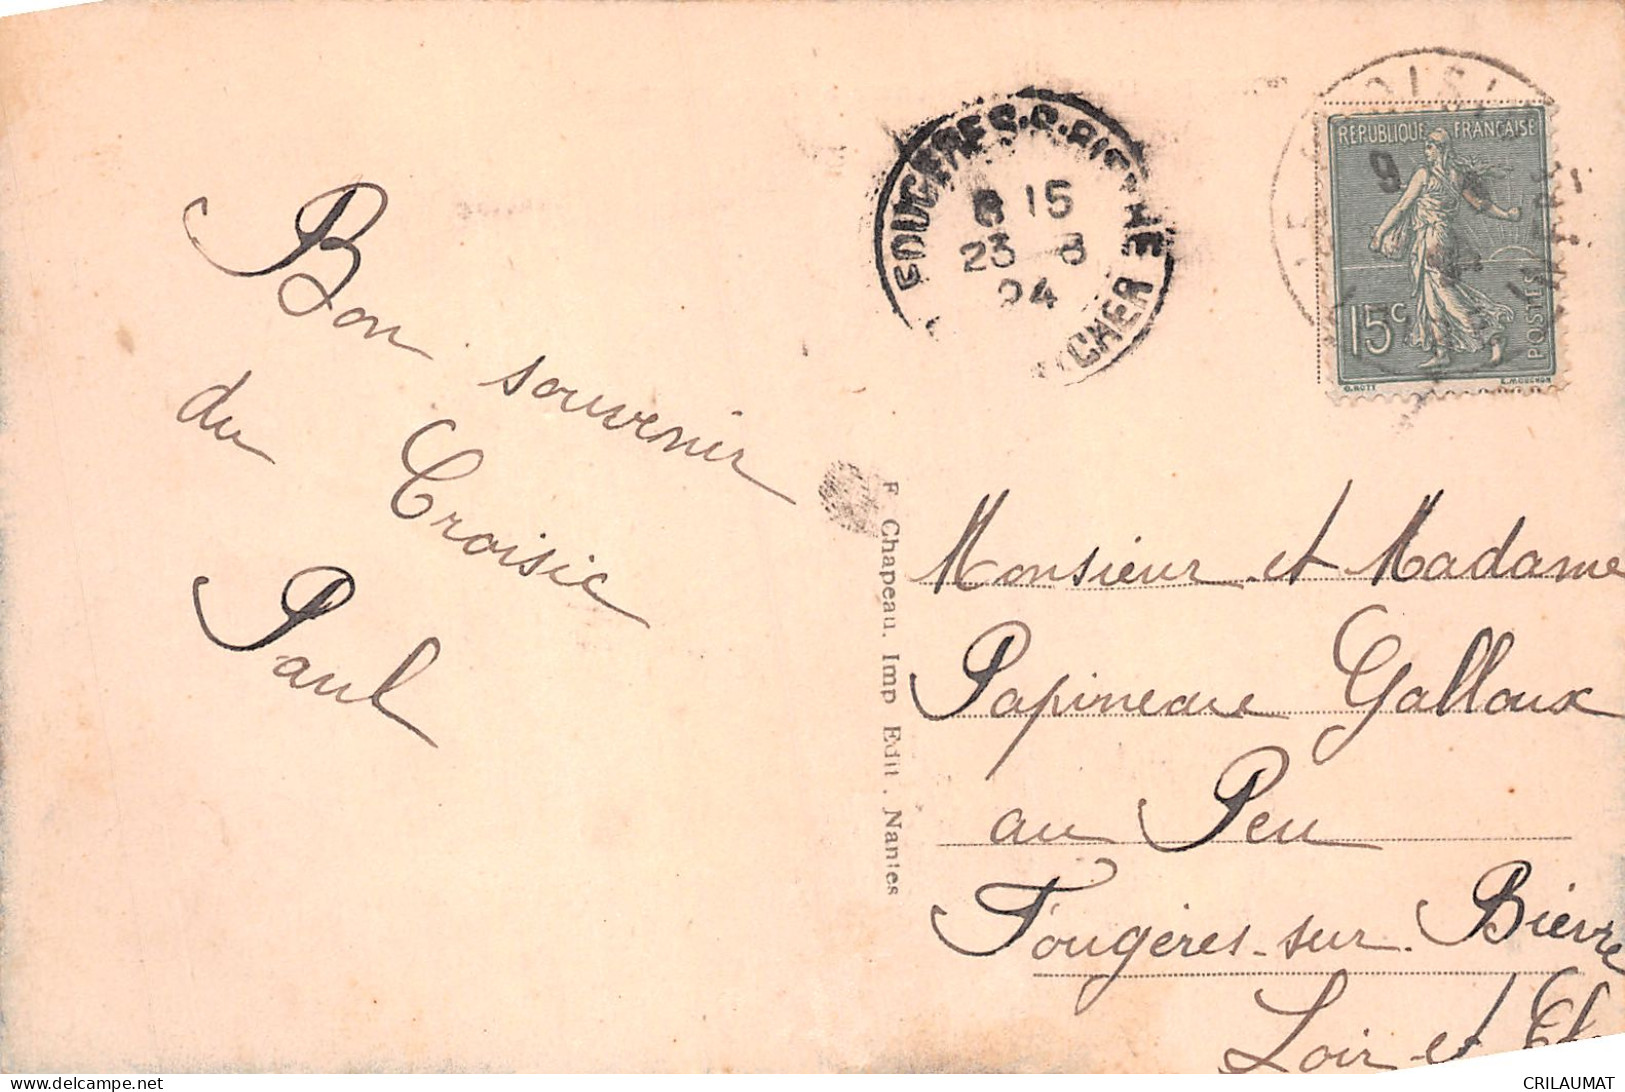 Bon souvenir
du Croisic
Paul
FOUGERES-S-BIEVRE
8 15
23 - 8
24
CHER
REPUBLIQUE FRANCAISE
15c
POSTES
O. ROTY
E. MOUCHON
F Chapeau. Imp Edit. Nantes
Monsieur et Madame
Papineau Galloux
au Peu
Fougères-sur-Bièvre
Loir-et-
CRILAUMAT